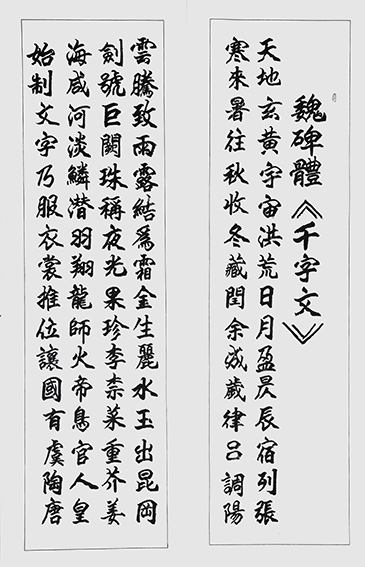 魏碑體《千字文》
天地玄黃宇宙洪荒日月盈昃辰宿列張
寒來暑往秋收冬藏閏余成歲律呂調陽
雲騰致雨露結爲霜金生麗水玉出昆岡
劍號巨闕珠稱夜光果珍李柰菜重芥姜
海咸河淡鱗潛羽翔龍師火帝鳥官人皇
始制文字乃服衣裳推位讓國有虞陶唐